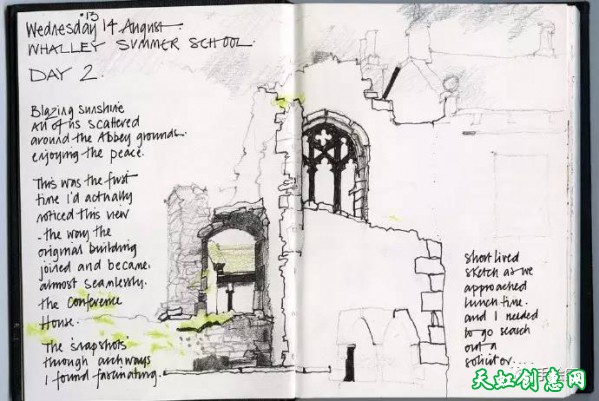 '13
Wednesday 14 August
WHALLEY SUMMER SCHOOL.
DAY 2.
Blazing sunshine
All of us scattered
around the Abbey grounds.
enjoying the peace.
This was the first
time I'd actually
noticed this view
- the way the
original building
joined and became.
almost seamlessly.
the Conference
House.
The 'snapshots'
through archways
I found fascinating.
Short lived
sketch as we
approached
lunch time.
and I needed
to go search
out a
solicitor....
天虹创意网